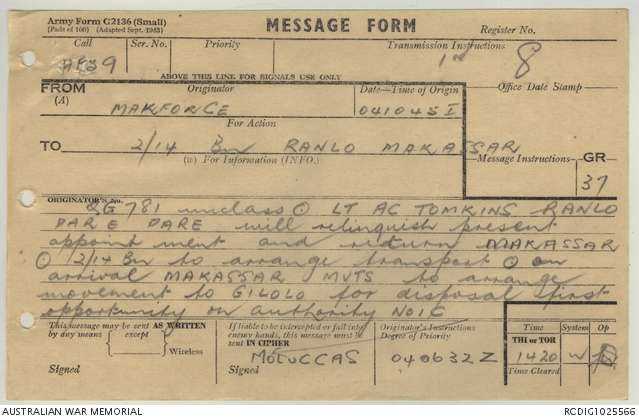 Army Form C2136 (Small)
(Pads of 100) (Adapted Sept., 1953)
MESSAGE FORM
Register No.
Call
Ser. No.
Priority
Transmission Instructions
8
ABOVE THIS LINE FOR SIGNALS USE ONLY
FROM
(A)
Originator
Date—Time of Origin
Office Date Stamp—
MAKFORCE
041045I
For Action
TO
2/14 Bn RANLO MAKASSAR
(W) For Information (INFO.)
Message Instructions
GR
37
ORIGINATOR'S No.
QG 781 unclass ⊙ LT AC TOMKINS RANLO
PARE PARE will relinquish present
appointment and return MAKASSAR
⊙ 2/14 Bn to arrange transport ⊙ on
arrival MAKASSAR MVTS to arrange
movement to GILOLO for disposal first
opportunity on authority NOIC
This message may be sent AS WRITTEN
by any means except
Wireless
Signed
If liable to be intercepted or fall into
enemy hands, this message must be
sent IN CIPHER
MOLUCCAS
Signed
Originator's Instructions
Degree of Priority
040632Z
Time
System
Op
THI or TOR
1420
W
Time Cleared
AUSTRALIAN WAR MEMORIAL
RCDIG1025566